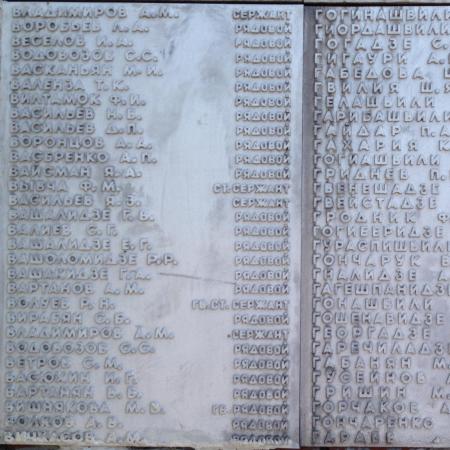 ВЛАДИМИРОВ А.М. СЕРЖАНТ
ВОРОБЬЕВ Л.А. РЯДОВОЙ
ВЕСЕЛОВ И.А. РЯДОВОЙ
ВОДОВОЗОВ С.С. РЯДОВОЙ
ВАСКАНЬЯН М.И. РЯДОВОЙ
ВАЛЕНЗА Т.К. РЯДОВОЙ
ВИЛТАМОК Ф.И. РЯДОВОЙ
ВАСИЛЬЕВ Н.Е. РЯДОВОЙ
ВАСИЛЬЕВ Д.П. РЯДОВОЙ
ВОРОНЦОВ А.А. РЯДОВОЙ
ВАСВРЕНКО А.П. РЯДОВОЙ
ВАЙСМАН Я.А. РЯДОВОЙ
ВЫБЧА Ф.М. СТ.СЕРЖАНТ
ВАСИЛЬЕВ Я.Б. СЕРЖАНТ
ВАШАЛИДЗЕ Г.В. РЯДОВОЙ
ВАЛИЕВ С.Г. РЯДОВОЙ
ВАШАЛИДЗЕ Е.Г. РЯДОВОЙ
ВАШОЛОМИДЗЕ Р.Р. РЯДОВОЙ
ВАШАКИДЗЕ Г.А. РЯДОВОЙ
ВАРТАНОВ А.М. РЯДОВОЙ
ВОЛУЕВ Р.Н. ГВ.СТ.СЕРЖАНТ
ВИРАБЯН С.Б. РЯДОВОЙ
ВЛАДИМИРОВ Д.М. СЕРЖАНТ
ВОДОВОЗОВ С.С. РЯДОВОЙ
ВЕТРОВ С.М. РЯДОВОЙ
ВАСЮХИН И.Г. РЯДОВОЙ
ВАРТАНЯН Б.Б. РЯДОВОЙ
ВИШНЯКОВА М.У. ГВ.РЯДОВОЙ
ВОЛКОВ А.В. РЯДОВОЙ
А.М. РЯДОВОЙ
ГОГИНАШВИЛИ
ГИОРДАШВИЛИ
ГОГАДЗЕ С.
ГИГАУРИ А.
ГАБЕДОВА
ГВИЛИЯ Ш.
ГЕЛАШВИЛИ
ГАРИБАШВИЛИ
ГАЙДАР П.А
ГАХАРИЯ К
ГОГИАШВИЛИ
ГРИДНЕВ П.
ГВЕНЕШАДЗЕ
ГВЕЙСТАДЗЕ
ГРОДНИК Ф
ГОГИЕВРИДЗЕ
ГУРАСПИШВИЛИ
ГОНЧАРУК В
ГНАЛИДЗЕ А
ГАГЕШПАНИДЗЕ
ГОНАШВИЛИ
ГОШЕНАВИДЗЕ
ГЕОРГАДЗЕ
ГАРЕЧИЛАДЗЕ
ГАБАНЯН М
ГУСЕЙНОВ А
ГРИШИН М.
ГОРЧАКОВ А
ГОНЧАРЕНКО